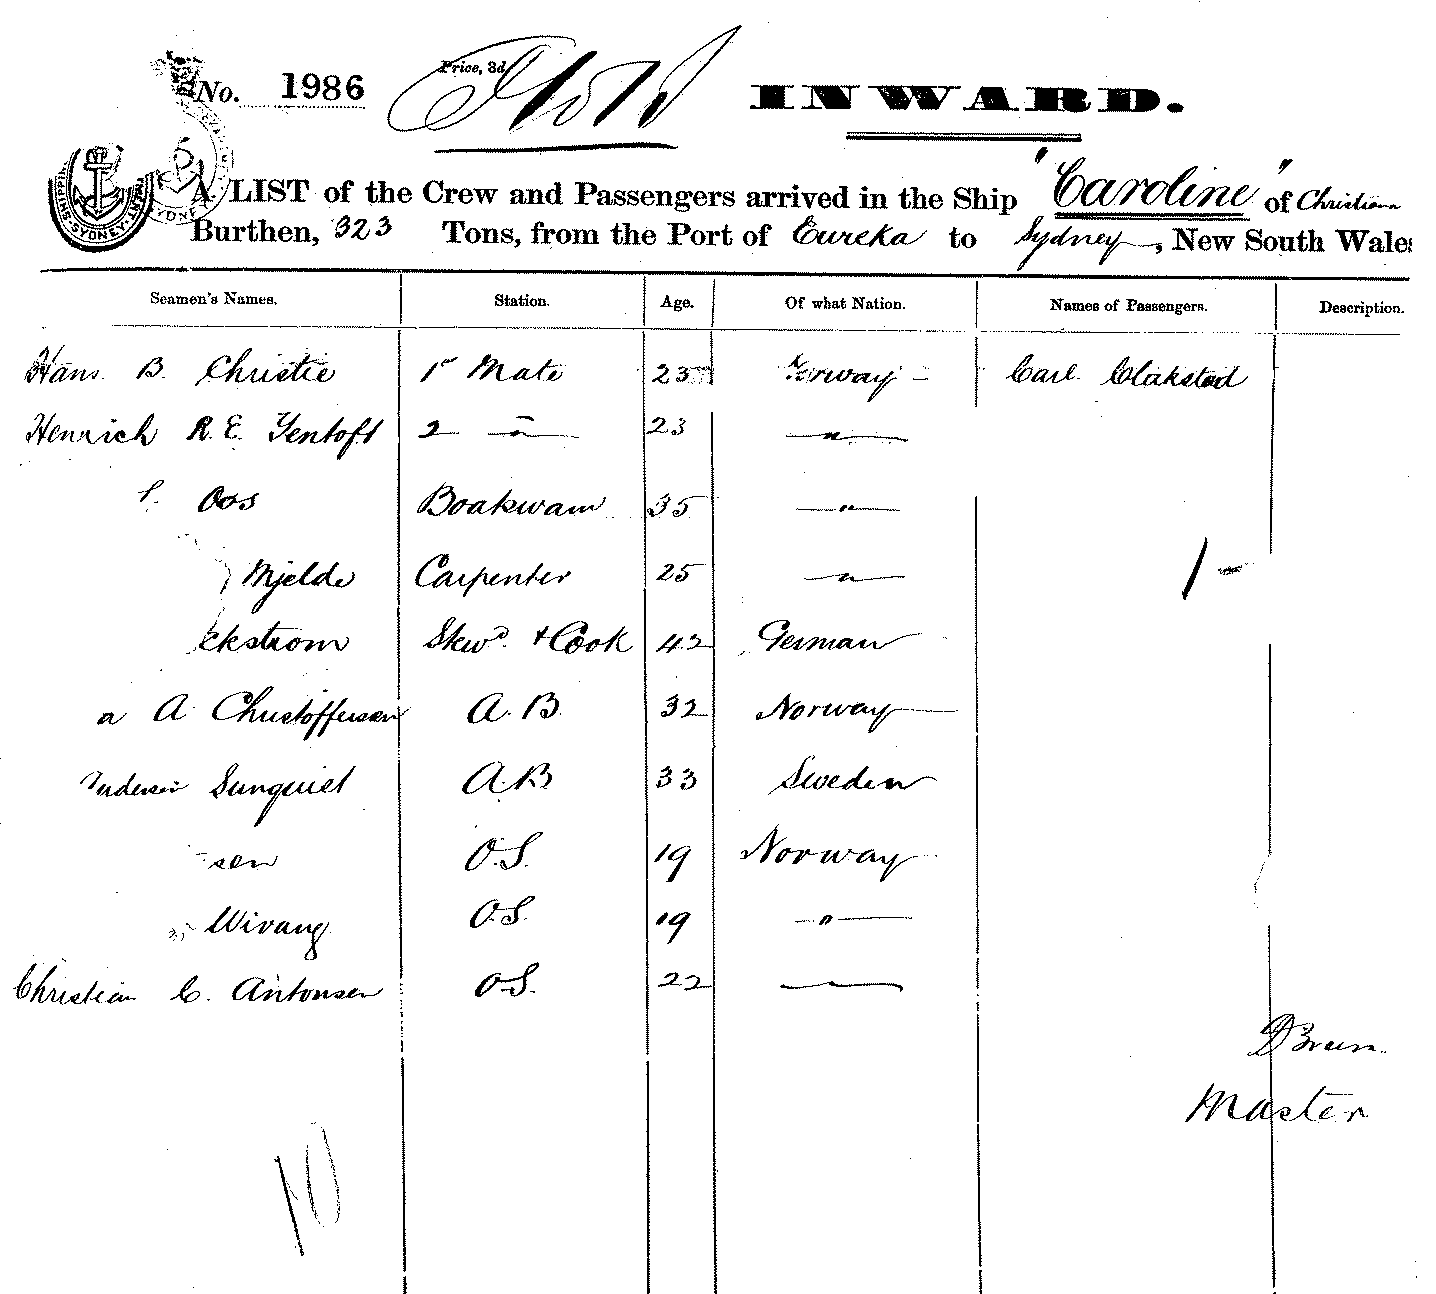 No. 1986 Price, 3d. INWARD.
A LIST of the Crew and Passengers arrived in the Ship "Caroline" of Christiana
Burthen, 323 Tons, from the Port of Eureka to Sydney, New South Wales
Seamen's Names. Station. Age. Of what Nation. Names of Passengers. Description.
Hans B. Christie 1st Mate 23 Norway Carl Clakstad
Henrich R. E. Gentoft 2 — " — 23 — " —
Oos Boatswain 35 — " —
Mjelde Carpenter 25 — " — 1 -
ckstrom Stewd + Cook 42 German
a A Christoffersen A. B. 32 Norway
Sunquist A. B. 33 Sweden
sen O. S. 19 Norway
Wivang O. S. 19 — " —
Christian C. Antonsen O. S. 22 —
Master
10
SHIPPING
SYDNEY